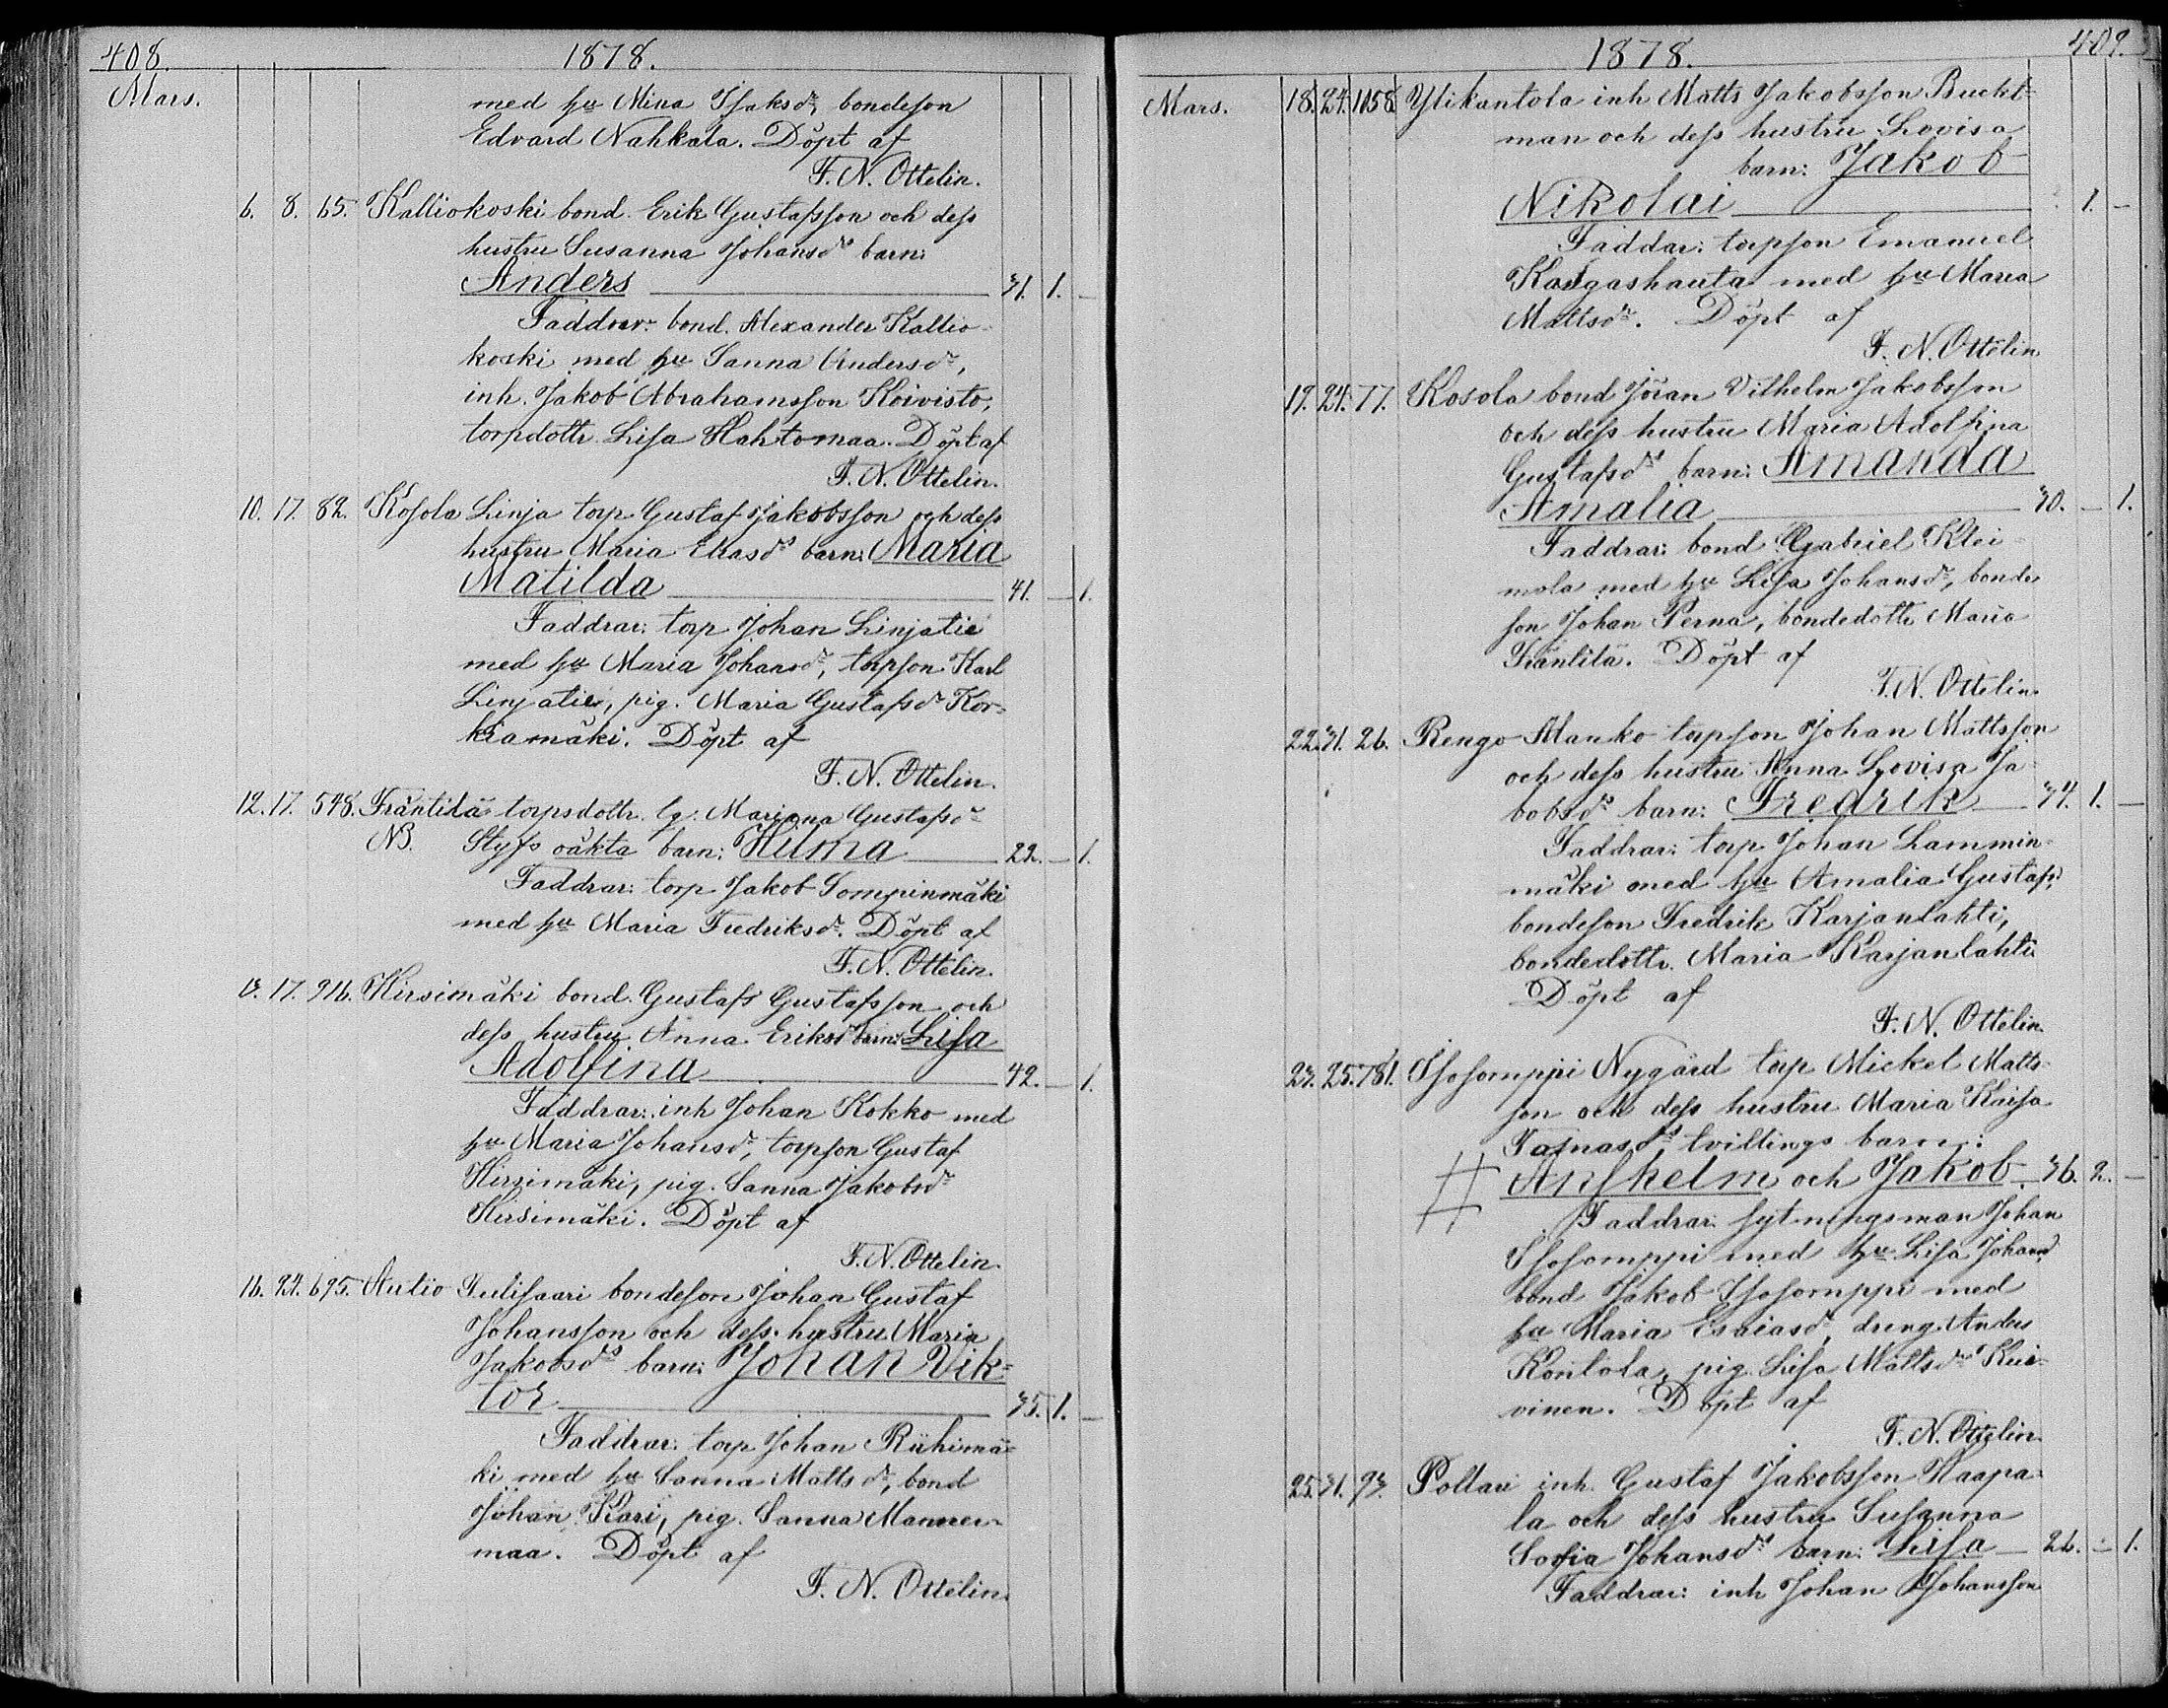 408. 1878.
Mars.
med hu Mina Isaksdr, bondeson
Edvard Nahkala. Döpt af
F. N. Ottelin.
6. 8. 65. Kalliokoski bond. Erik Gustafsson och dess
hustru Susanna Johansdrs barn:
Anders 31. 1. —
Faddrar: bond. Alexander Kallio-
koski med hu Sanna Andersdr,
inh. Jakob Abrahamsson Koivisto,
torpdottr. Lisa Hahtomaa. Döpt af
F. N. Ottelin.
10. 17. 82. Kosola Linja torp Gustaf Jakobsson och dess
hustru Maria Eliasdrs barn: Maria
Matilda 41. — 1.
Faddrar: torp Johan Linjatie
med hu Maria Johansdr, torpson Karl
Linjatie, pig. Maria Gustafsdr Kor-
kiamäki. Döpt af
F. N. Ottelin.
12. 17. 548. Fräntilä torpsdottr. lg: Mariana Gustafsdr
NB. Styfs oäkta barn: Hilma 22. — 1.
Faddrar: torp Jakob Sompinmäki
med hu Maria Fredriksdr. Döpt af
F. N. Ottelin.
13. 17. 916. Hirsimäki bond. Gustaf Gustafsson och
dess hustru Anna Eriksdrs barn: Lisa
Adolfina 42. — 1.
Faddrar: inh Johan Kokko med
hu Maria Johansdr, torpson Gustaf
Hirsimäki, pig. Sanna Jakobsdr
Hirsimäki. Döpt af
F. N. Ottelin.
16. 24. 695. Autio Julisaari bondeson Johan Gustaf
Johansson och dess hustru Maria
Jakobsdrs barn: Johan Vik-
tor 35. 1. —
Faddrar: torp Johan Riihimä-
ki med hu Sanna Mattsdr, bond
Johan Kari, pig. Sanna Manner-
maa. Döpt af
F. N. Ottelin.
1878. 409.
Mars. 18. 24. 1058. Ylikantola inh Matts Jakobsson Buckt-
man och dess hustru Lovisa
barn: Jakob
Nikolai 1. —
Faddar: torpson Emanuel
Kangashauta med hu Maria
Mattsdr. Döpt af
F. N. Ottelin
19. 24. 77. Kosola bond Jöran Vilhelm Jakobsson
och dess hustru Maria Adolfina
Gustafsdrs barn: Amanda
Amalia 30. — 1.
Faddrar: bond Gabriel Klei-
mola med hu Lisa Johansdr, bonde
son Johan Perna, bondedottr Maria
Fräntilä. Döpt af
F. N. Ottelin.
22. 31. 26. Rengo Manko torpson Johan Mattsson
och dess hustru Anna Lovisa Ja-
kobsdrs barn: Fredrik 34. 1. —
Faddrar: torp Johan Lammin-
mäki med hu Amalia Gustafsd
bondeson Fredrik Karjanlahti,
bondedottr. Maria Karjanlahti
Döpt af
F. N. Ottelin.
23. 25. 781. Isosomppi Nygård torp Mickel Matts-
son och dess hustru Maria Kaisa
Tomasdrs tvillings barn:
Anshelm och Jakob. 36. 2. —
Faddrar: sytningsman Johan
Isosomppi med hu Lisa Johansd
bond Jakob Isosomppi med
hu Maria Esaiasdr, dreng Anders
Kontola, pig. Lisa Mattsdr Kui-
vinen. Döpt af
F. N. Ottelin.
25. 31. 93. Poltari inh. Gustaf Jakobsson Haapa-
la och dess hustru Susanna
Sofia Johansdrs barn: Lisa 26. — 1.
Faddrar: inh Johan Johansson